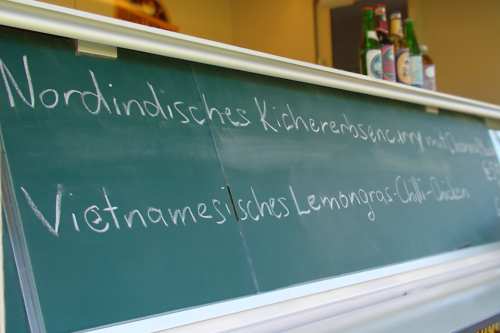 Nordindisches Kichererbsencurry mit
Vietnamesisches Lemongras-Chilli-Chicken